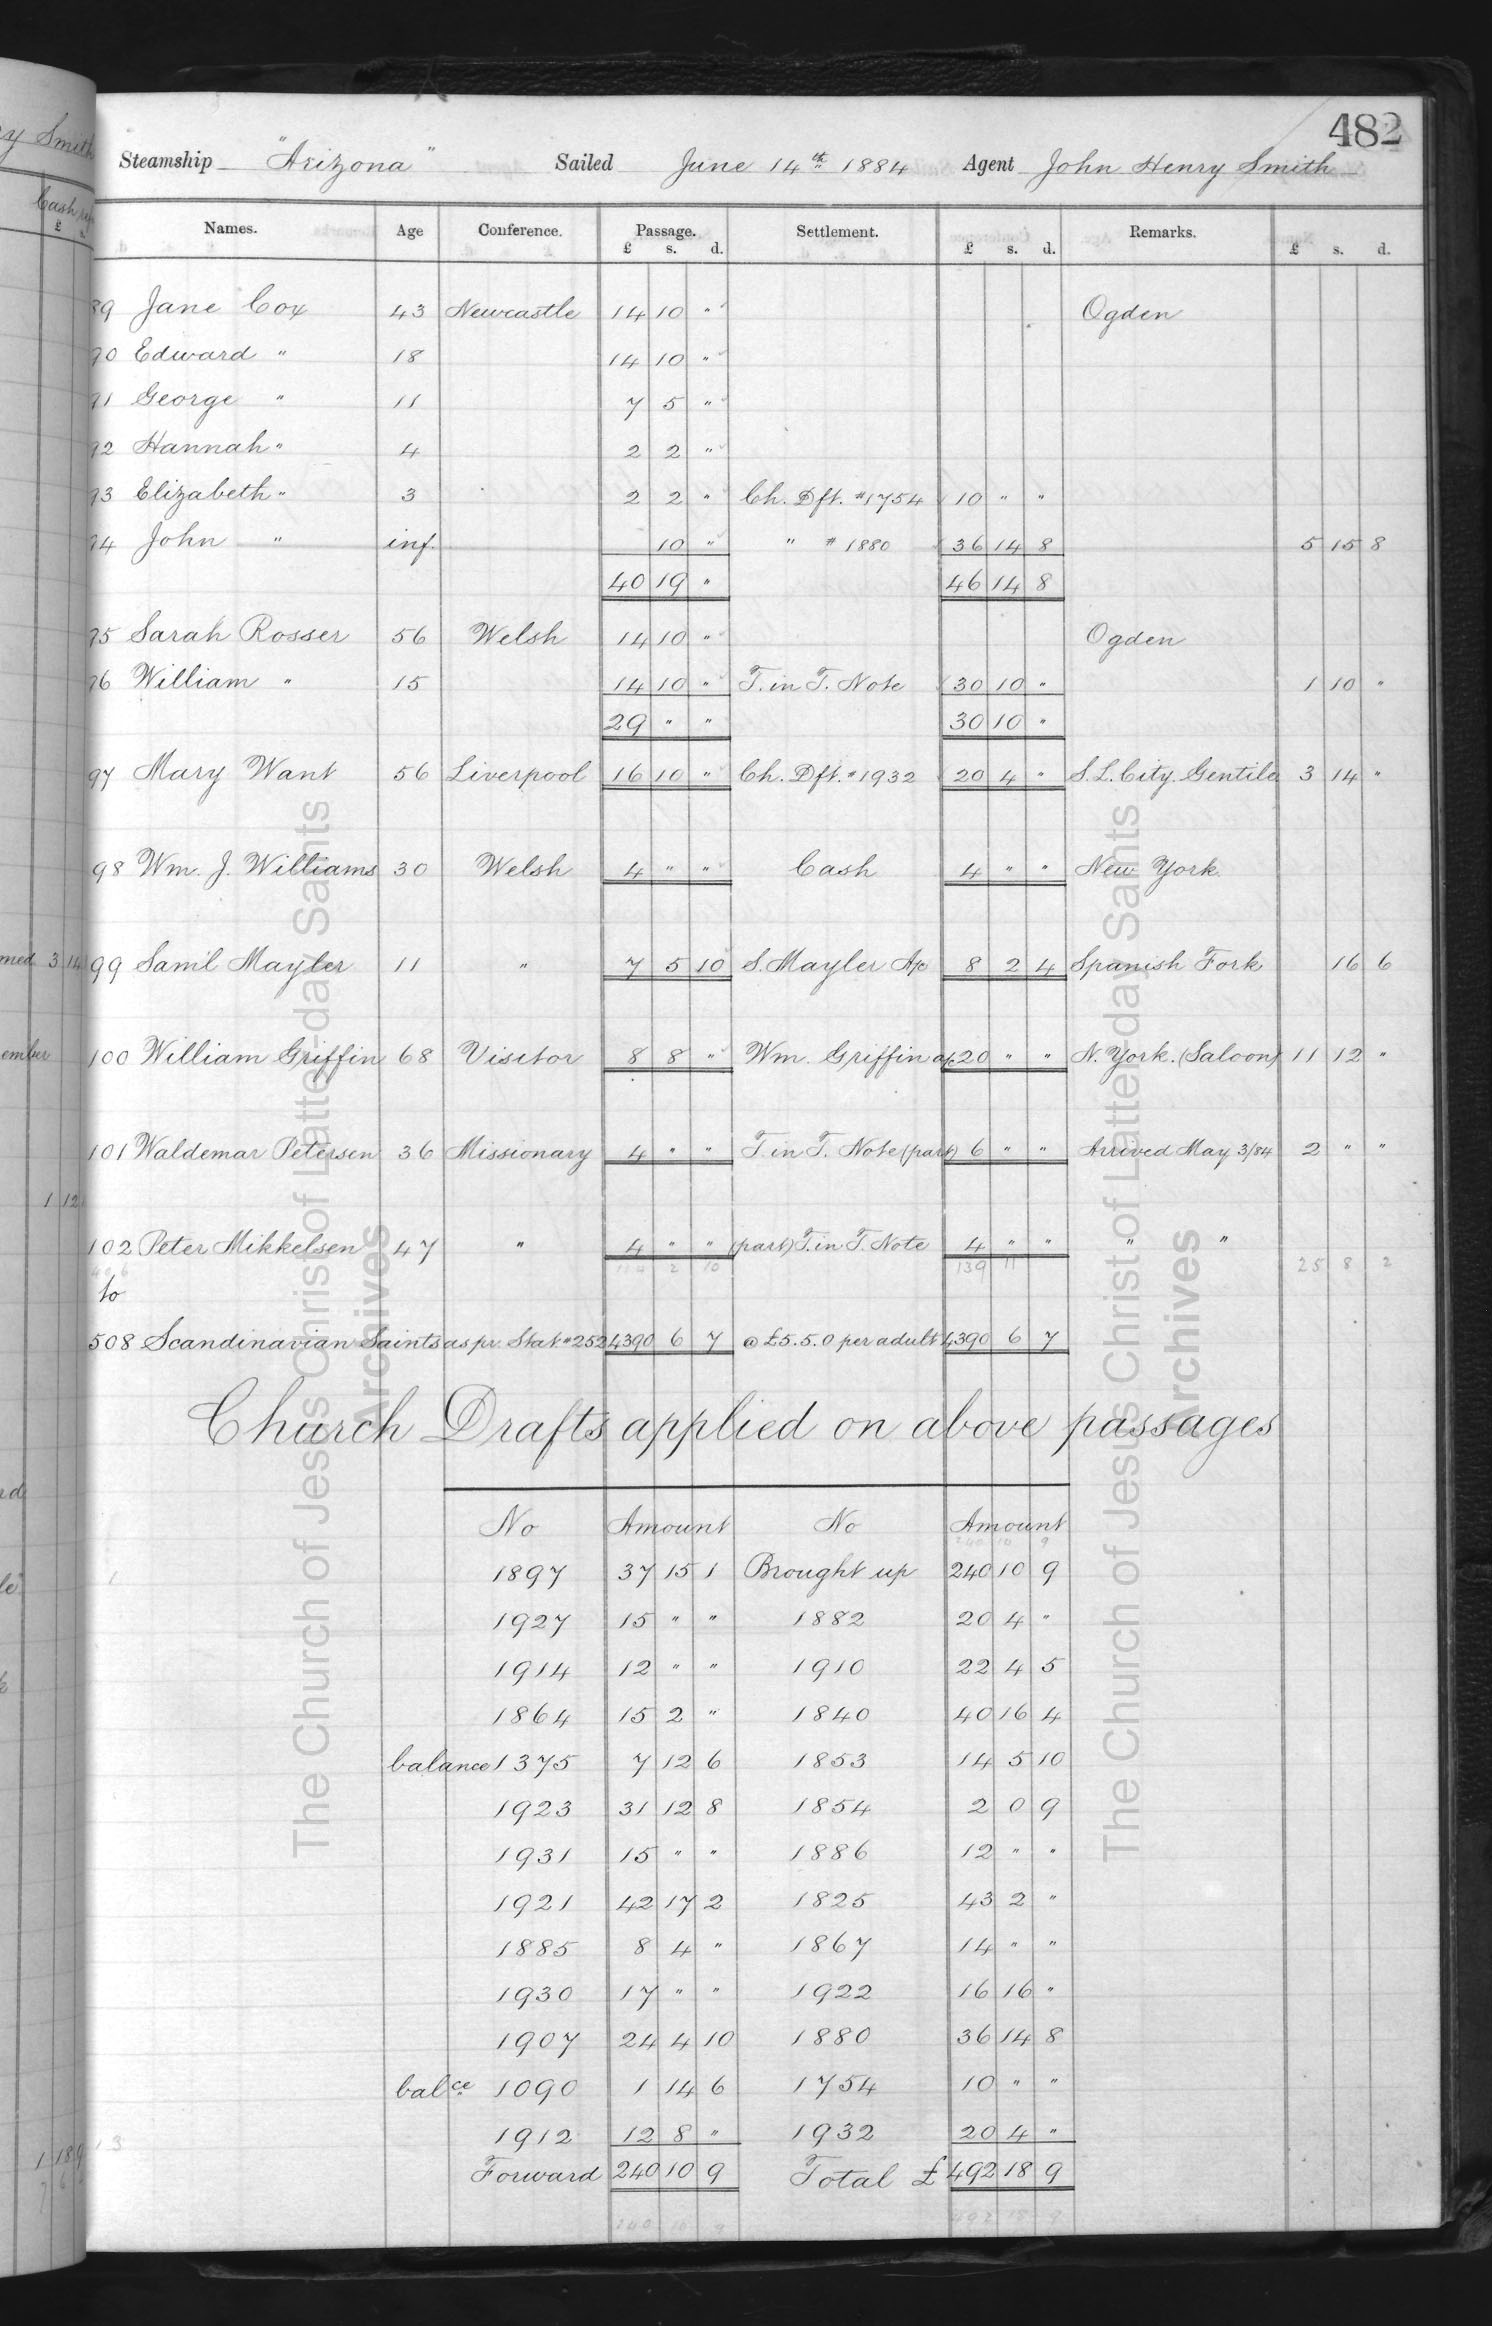 482
Steamship "Arizona" Sailed June 14th 1884 Agent John Henry Smith
Names. Age Conference. Passage. Settlement. Remarks.
£ s. d. £ s. d. £ s. d.
89 Jane Cox 43 Newcastle 14 10 " Ogden
90 Edward " 18 14 10 "
91 George " 11 7 5 "
92 Hannah " 4 2 2 "
93 Elizabeth " 3 2 2 " Ch. Dft. #1754 10 " "
94 John " inf. 10 " " #1880 36 14 8 5 15 8
40 19 " 46 14 8
95 Sarah Rosser 56 Welsh 14 10 " Ogden
96 William " 15 14 10 " T. in T. Note 30 10 " 1 10 "
29 " " 30 10 "
97 Mary Want 56 Liverpool 16 10 " Ch. Dft. #1932 20 4 " S. L. City. Gentile 3 14 "
98 Wm. J. Williams 30 Welsh 4 " " Cash 4 " " New York
99 Saml Mayler 11 " 7 5 10 S. Mayler A/c 8 2 4 Spanish Fork 16 6
100 William Griffin 68 Visitor 8 8 " Wm. Griffin a/c 20 " " N. York. (Saloon) 11 12 "
101 Waldemar Petersen 36 Missionary 4 " " T. in T. Note (part) 6 " " Arrived May 3/84 2 " "
102 Peter Mikkelsen 47 " 4 " " (part) T. in T. Note 4 " " " "
406 114 2 10 139 11 25 8 2
to
508 Scandinavian Saints as pr. Stat. #252 4390 6 7 @ £5.5.0 per adult 4390 6 7
Church Drafts applied on above passages
No Amount No Amount
240 10 9
1897 37 15 1 Brought up 240 10 9
1927 15 " " 1882 20 4 "
1914 12 " " 1910 22 4 5
1864 15 2 " 1840 40 16 4
balance 1375 7 12 6 1853 14 5 10
1923 31 12 8 1854 2 0 9
1931 15 " " 1886 12 " "
1921 42 17 2 1825 43 2 "
1885 8 4 " 1867 14 " "
1930 17 " " 1922 16 16 "
1907 24 4 10 1880 36 14 8
balce 1090 1 14 6 1754 10 " "
1912 12 8 " 1932 20 4 "
Forward 240 10 9 Total £ 492 18 9
240 10 9 492 18 9
The Church of Jesus Christ of Latter-day Saints
Archives
The Church of Jesus Christ of Latter-day Saints
Archives